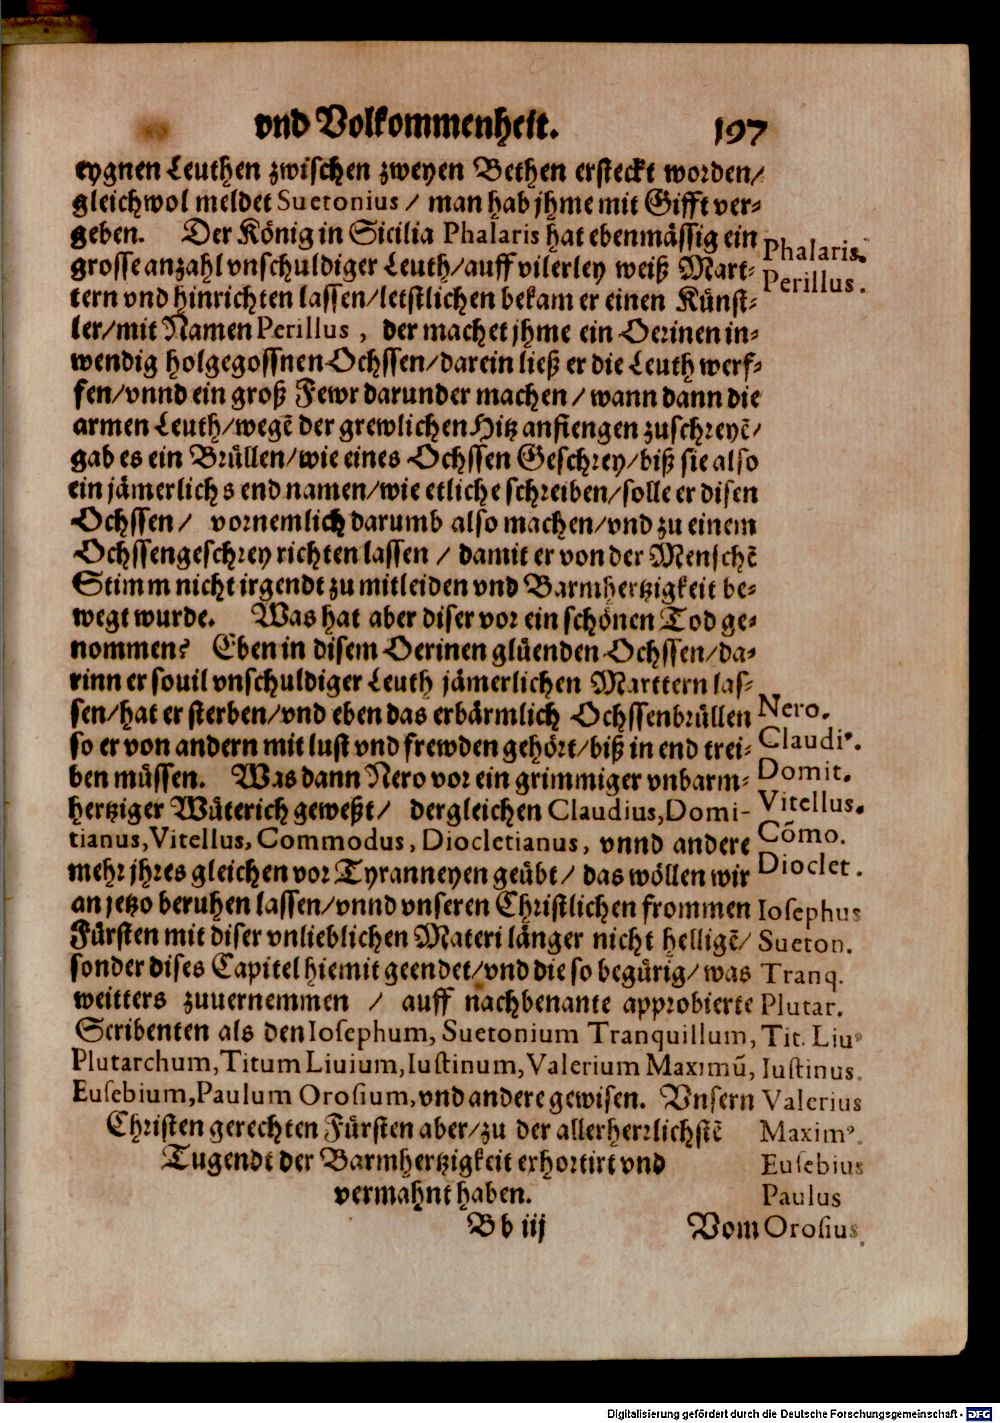 vnd Volkommenheit. 197
eygnen Leuthen zwischen zweyen Bethen ersteckt worden/
gleichwol meldet Suetonius / man hab jhme mit Gifft ver-
geben. Der König in Sicilia Phalaris hat ebenmässig ein
grosse anzahl vnschuldiger Leuth/auff vilerley weiß Mart-
tern vnd hinrichten lassen/letstlichen bekam er einen Künst-
ler/mit Namen Perillus, der machet jhme ein Oerinen in-
wendig holgegossnen Ochssen/darein ließ er die Leuth werf-
fen/vnnd ein groß Fewr darunder machen / wann dann die
armen Leuth/wegẽ der grewlichen Hitz anfiengen zuschreyẽ/
gab es ein Brüllen/wie eines Ochssen Geschrey/biß sie also
ein jämerlichs end namen/wie etliche schreiben/solle er disen
Ochssen / vornemlich darumb also machen/vnd zu einem
Ochssengeschrey richten lassen / damit er von der Menschẽ
Stimm nicht irgendt zu mitleiden vnd Barmhertzigkeit be-
wegt wurde. Was hat aber diser vor ein schönen Tod ge-
nommen? Eben in disem Oerinen glüenden Ochssen/da-
rinn er souil vnschuldiger Leuth jämerlichen Marttern las-
sen/hat er sterben/vnd eben das erbärmlich Ochssenbrüllen
so er von andern mit lust vnd frewden gehört/biß in end trei-
ben müssen. Was dann Nero vor ein grimmiger vnbarm-
hertziger Wüterich geweßt / dergleichen Claudius, Domi-
tianus, Vitellus, Commodus, Diocletianus, vnnd andere
mehr jhres gleichen vor Tyranneyen geübt / das wöllen wir
an jetzo beruhen lassen/vnnd vnseren Christlichen frommen
Fürsten mit diser vnlieblichen Materi länger nicht helligẽ/
sonder dises Capitel hiemit geendet/vnd die so begürig/was
weitters zuuernemmen / auff nachbenante approbierte
Scribenten als den Iosephum, Suetonium Tranquillum,
Plutarchum, Titum Liuium, Iustinum, Valerium Maximū,
Eusebium, Paulum Orosium, vnd andere gewisen. Vnsern
Christen gerechten Fürsten aber/zu der allerherrlichstẽ
Tugendt der Barmhertzigkeit exhortirt vnd
vermahnt haben.
Bb iij Vom
Phalaris.
Perillus.
Nero.
Claudiꝰ.
Domit.
Vitellus.
Cōmo.
Dioclet.
Iosephus
Sueton.
Tranq.
Plutar.
Tit. Liuꝰ
Iustinus.
Valerius
Maximꝰ.
Eusebius
Paulus
Orosius.
Digitalisierung gefördert durch die Deutsche Forschungsgemeinschaft - DFG